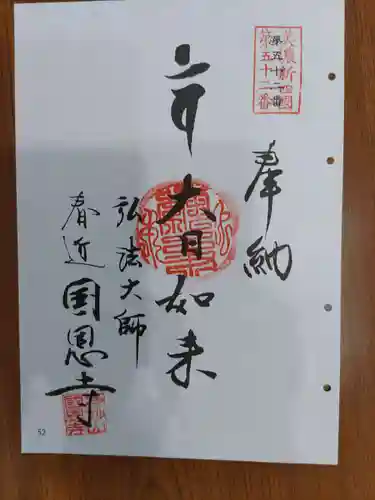 美濃新四国
第五十二番
奉納
大日如来
弘法大師
春近 国恩寺
52